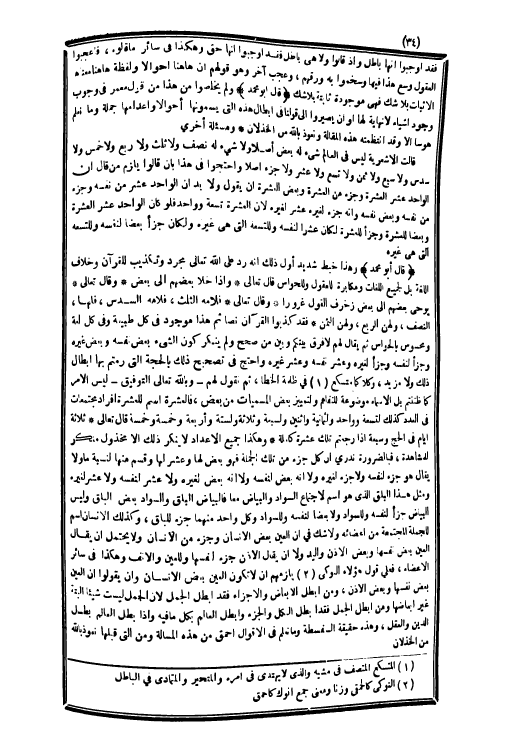 (٣٤)
فقد اوجبوا انها باطل واذ قالوا ولا هى باطل فقد اوجبوا انها حق وهكذا فى سائر ماقالوه ، فاعجبوا
العقول وسع هذا فيها وسخموا به ورقهم ، وعجب آخر وهو قولهم ان هاهنا احوالا ولفظة هاهنا
الاثبات بلا شك فهى موجودة ثابتة بلا شك ﴿ قال ابو محمد ﴾ ولم يخلصوا من هذا من قول معمر فى وجوب
وجود اشياء لا نهاية لها او ان يصيروا الى قولنا فى ابطال هذه التى يسمونها أحوالا واعدامها جملة وما نعلم
هوسا الا وقد انتظمته هذه المقالة ونعوذ بالله من الخذلان * ومسئلة أخرى
قالت الاشعرية ليس فى العالم شىء له بعض أصلا ولا شىء له نصف ولا ثلث ولا ربع ولا خمس ولا
سدس ولا سبع ولا ثمن ولا تسع ولا عشر ولا جزء اصلا واحتجوا فى هذا بان قالوا يلزم من قال ان
الواحد عشر العشرة وجزء من العشرة وبعض للعشرة ان يقول ولا بد ان الواحد عشر من نفسه وجزء
من نفسه وبعض نفسه وانه جزء لغيره عشر لغيره لان العشرة تسعة وواحد فلو كان الواحد عشر العشرة
وبعضا للعشرة وجزأ للعشرة لكان عشرا لنفسه وللتسعة التى هى غيره ولكان جزأ بعضا لنفسه وللتسعة
التى هى غيره
﴿ قال أبو محمد ﴾ وهذا خبط شديد أول ذلك انه رد على الله تعالى مجرد وتكذيب للقرآن وخلاف
اللغة بل لجميع اللغات ومكابرة للعقول وللحواس قال تعالى * واذا خلا بعضهم الى بعض * وقال تعالى *
يوحى بعضهم الى بعض زخرف القول غرورا * وقال تعالى * فلامه الثلث ، فلامه السدس ، فلها ،
النصف ، ولهن الربع ، ولهن الثمن * فقد كذبوا القرآن نصا ثم هذا موجود فى كل طبيعة وفى كل لغة
ومحسوس بالحواس ثم يقال لهم لا فرق بينكم وبين من صحح ولم ينكر كون الشىء بعض نفسه وبعض غيره
وجزأ لنفسه وجزأ لغيره وعشر نفسه وعشر غيره واحتج فى تصحيح ذلك بالحجة التى رمتم بها ابطال
ذلك ولا مزيد ، وكلاكما متسكع (١) فى ظلمة الخطا ، ثم نقول لهم – وبالله تعالى التوفيق – ليس الامر
كما ظننتم بل الاسماء موضوعة للتفاهم ولتمييز بعض المسميات من بعض ، فالعشرة اسم للعشرة افراد مجتمعات
فى العدد كذلك لتسعة وواحد ولثمانية واثنين ولسبعة وثلاثة ولستة وأربعة وخمسة وخمسة قال تعالى * ثلاثة
ايام فى الحج وسبعة اذا رجعتم تلك عشرة كاملة * وهكذا جميع الاعداد لا ينكر ذلك الا مخذول منكر
للمشاهدة ، فبالضرورة ندرى أن كل جزء من تلك الجملة فهو بعض لها وعشر لها وقسم منها لنسبة ما ولا
يقال هو جزء لنفسه ولا جزء لغيره ولا انه بعض لنفسه ولا انه بعض لغيره ولا عشر لنفسه ولا عشر لغيره
ومثل هذا البلق الذى هو اسم لاجتماع السواد والبياض معا فالبياض بعض البلق والسواد بعض البلق وليس
البياض جزأ لنفسه وللسواد ولا بعضا لنفسه وللسواد وكل واحد منهما جزء للبلق ، وكذلك الانسان اسم
للجملة المجتمعة من اعضائه ولا شك فى ان العين بعض الانسان وجزء من الانسان ولا يحتمل ان يقال
العين بعض نفسها وبعض الاذن واليد ولا ان يقال الاذن جزء لنفسها وللعين والانف وهكذا فى سائر
الاعضاء ، فعلى قول هؤلاء النوكى (٢) يلزمهم ان لا تكون العين بعض الانسان وان يقولوا ان العين
بعض نفسها وبعض الاذن ، ومن ابطل الابعاض والاجزاء فقد ابطل الجمل لان الجمل ليست شيئا البتة
غير ابعاضها ومن ابطل الجمل فقد ابطل الكل والجزء وابطل العالم بكل مافيه واذا بطل العالم بطل
الدين والعقل ، وهذه حقيقة السفسطة وما نعلم فى الاقوال احمق من هذه المسالة ومن التى قبلها نعوذ بالله
من الخذلان
(١) المتسكع المتعسف فى مشيه والذى لا يهتدى فى امره والمتحير والمتمادى فى الباطل
(٢) النوكى كالحمقى وزنا ومعنى جمع انوك كاحمق